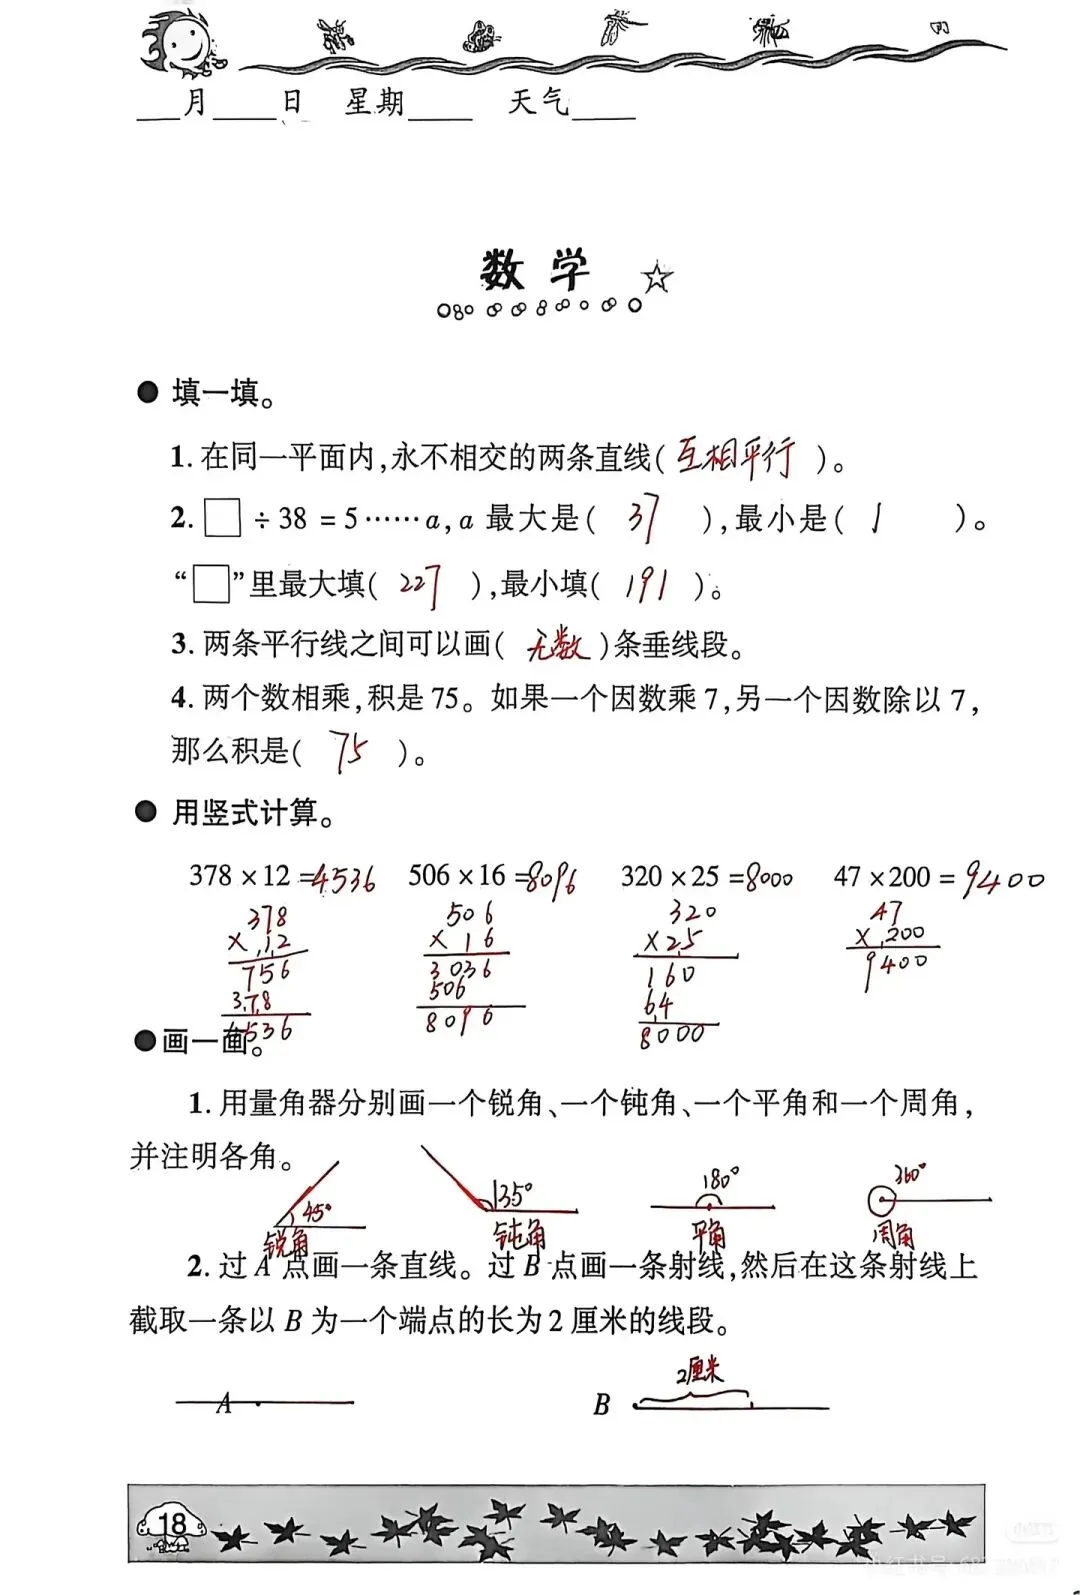 ___月____日 星期____ 天气____
数学
● 填一填。
1. 在同一平面内,永不相交的两条直线( 互相平行 )。
2. □ ÷ 38 = 5……a, a 最大是( 37 ),最小是( 1 )。
“□”里最大填( 227 ),最小填( 191 )。
3. 两条平行线之间可以画( 无数 )条垂线段。
4. 两个数相乘,积是 75。如果一个因数乘 7,另一个因数除以 7,
那么积是( 75 )。
● 用竖式计算。
378 × 12 = 4536 506 × 16 = 8096 320 × 25 = 8000 47 × 200 = 9400
378 506 320 47
× 12 × 16 × 25 × 200
756 3036 160 9400
378 506 64
4536 8096 8000
● 画一画。
1. 用量角器分别画一个锐角、一个钝角、一个平角和一个周角,
并注明各角。
45° 135° 180° 360°
锐角 钝角 平角 周角
2. 过 A 点画一条直线。过 B 点画一条射线,然后在这条射线上
截取一条以 B 为一个端点的长为 2 厘米的线段。
2厘米
A B
18